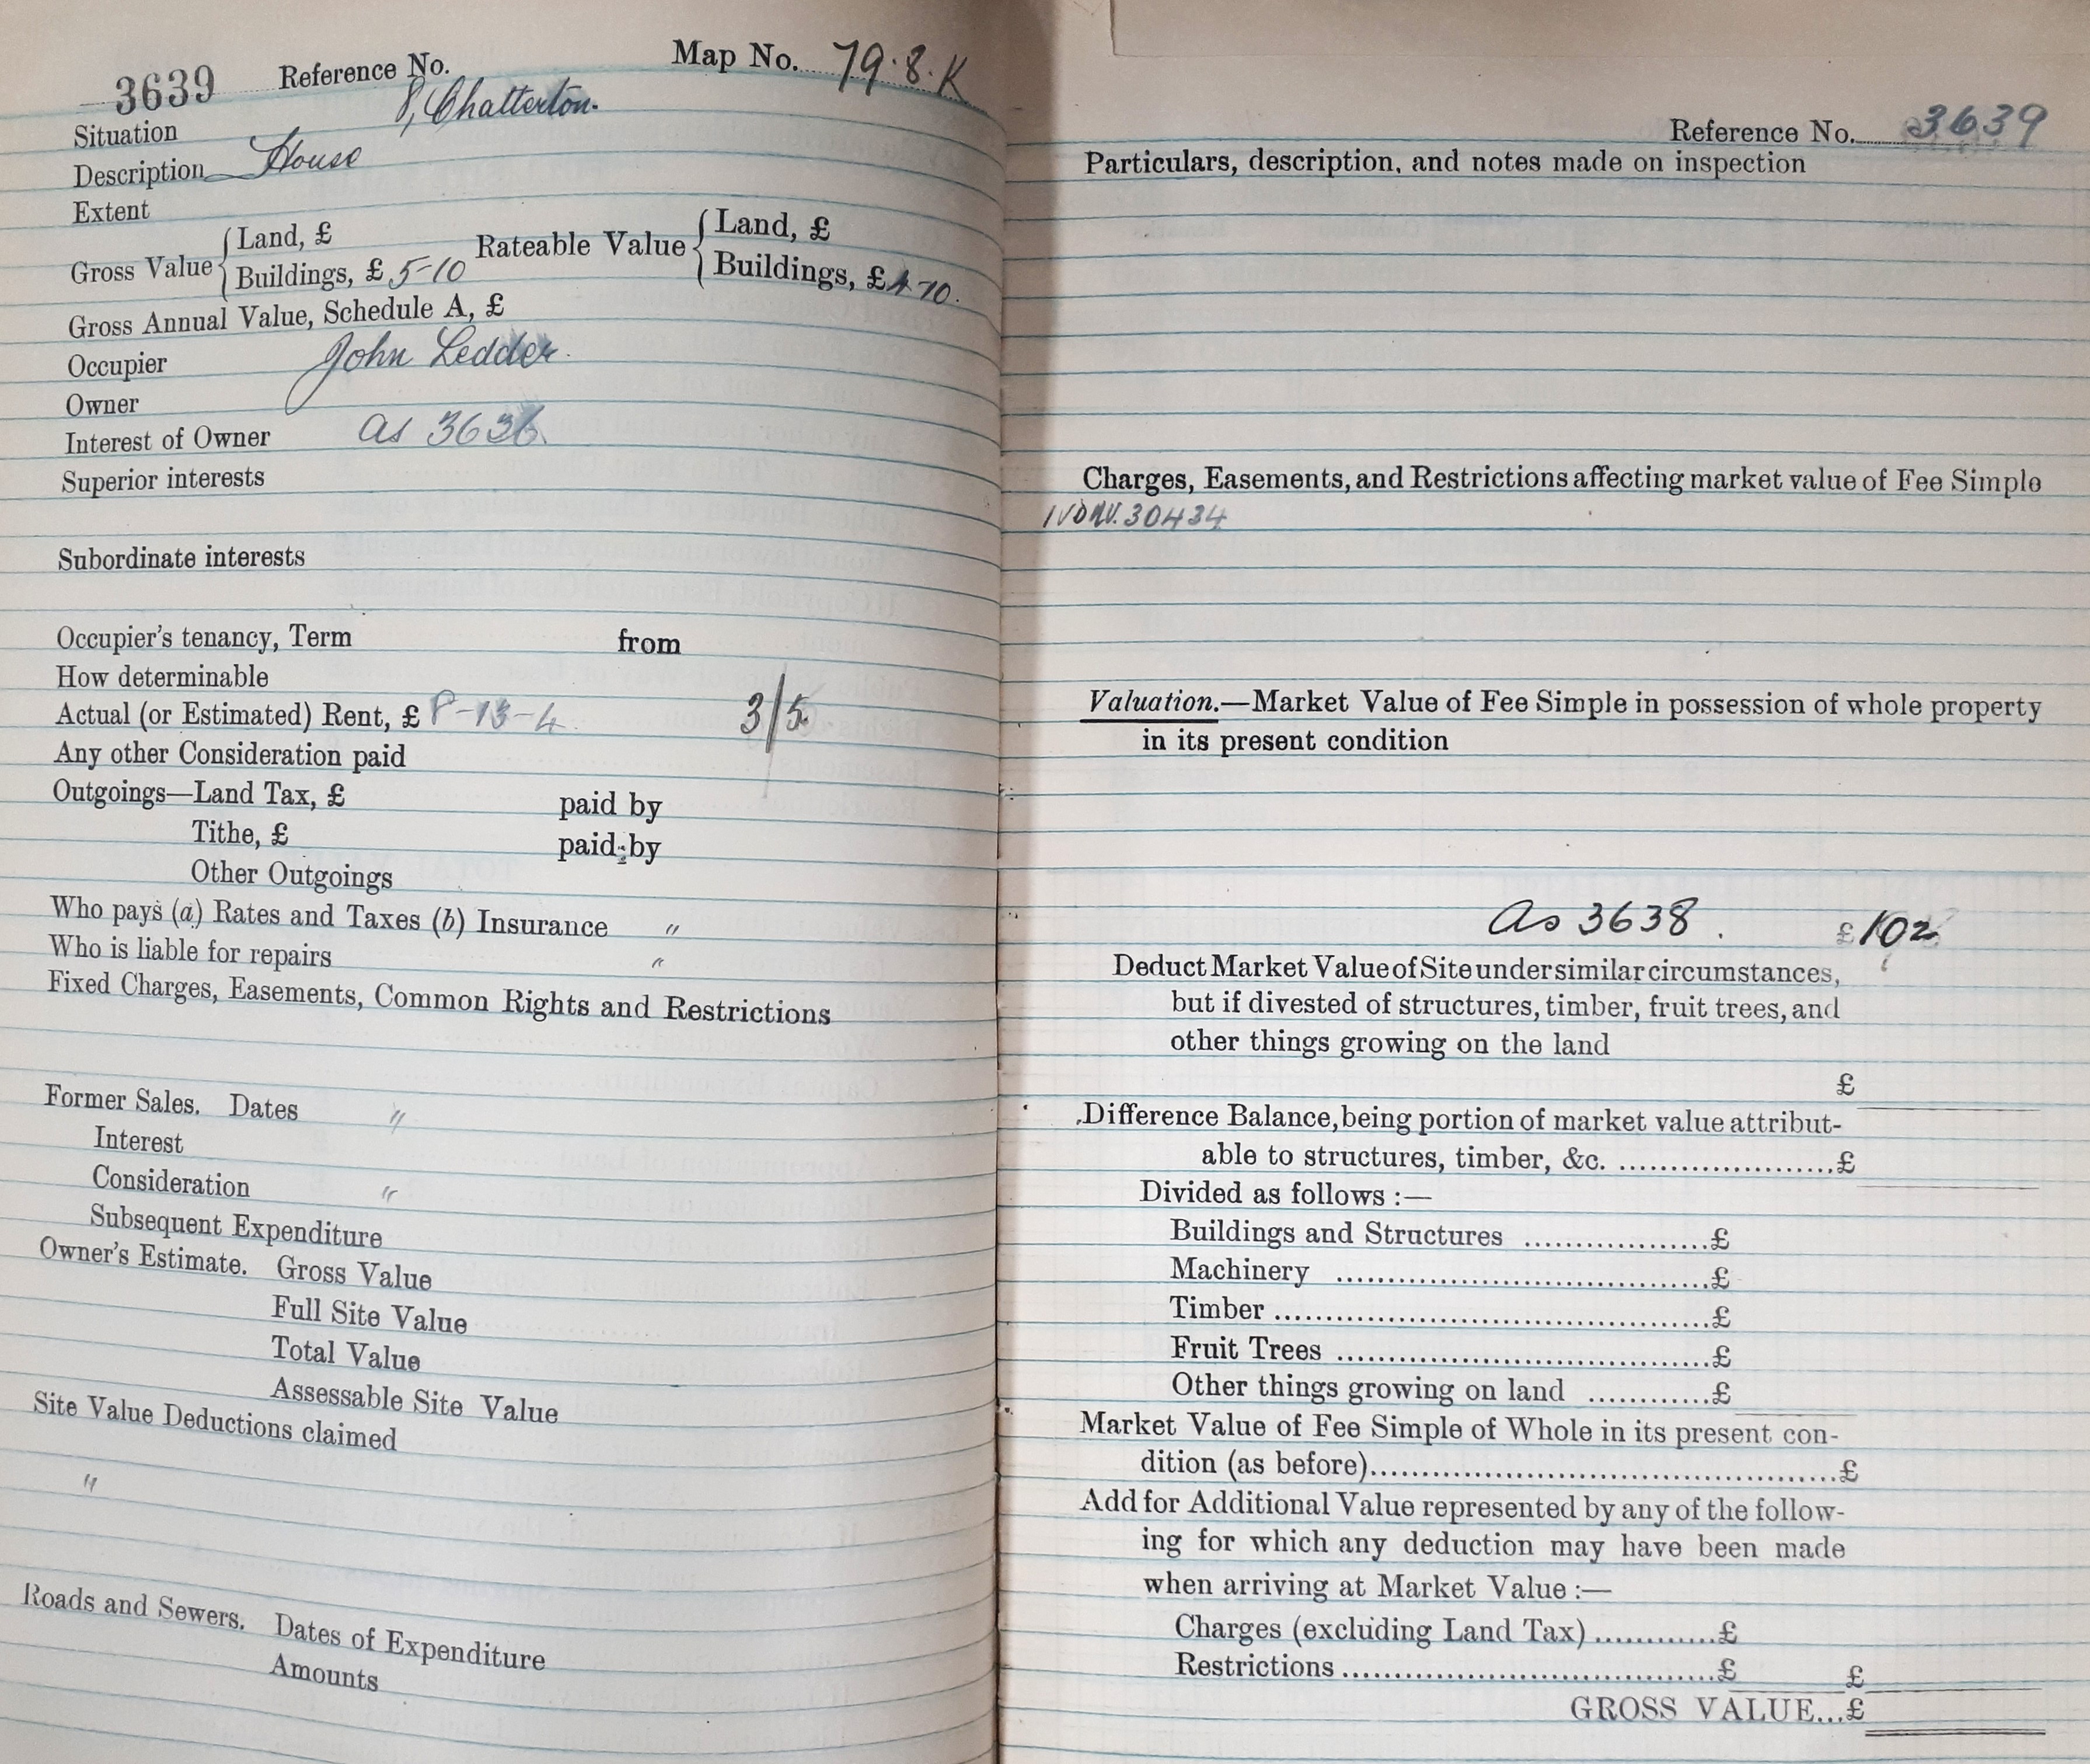 3639 Reference No. Map No. 79.8.K
Situation 8, Chatterton.
Description House
Extent
Gross Value { Land, £ Rateable Value { Land, £
Buildings, £ 5-10 Buildings, £ 4-10.
Gross Annual Value, Schedule A, £
Occupier John Ledder.
Owner
Interest of Owner as 3636.
Superior interests
Subordinate interests
Occupier's tenancy, Term from
How determinable
Actual (or Estimated) Rent, £ 8-13-4 3/5
Any other Consideration paid
Outgoings—Land Tax, £ paid by
Tithe, £ paid by
Other Outgoings
Who pays (a) Rates and Taxes (b) Insurance "
Who is liable for repairs "
Fixed Charges, Easements, Common Rights and Restrictions
Former Sales. Dates "
Interest
Consideration "
Subsequent Expenditure
Owner's Estimate. Gross Value
Full Site Value
Total Value
Assessable Site Value
Site Value Deductions claimed
"
Roads and Sewers. Dates of Expenditure
Amounts
Reference No. 3639
Particulars, description, and notes made on inspection
Charges, Easements, and Restrictions affecting market value of Fee Simple
30434
Valuation.—Market Value of Fee Simple in possession of whole property
in its present condition
As 3638. £102
Deduct Market Value of Site under similar circumstances,
but if divested of structures, timber, fruit trees, and
other things growing on the land
£
Difference Balance, being portion of market value attribut-
able to structures, timber, &c. ......................£
Divided as follows :—
Buildings and Structures ..................£
Machinery .....................................£
Timber ...........................................£
Fruit Trees .....................................£
Other things growing on land ............£
Market Value of Fee Simple of Whole in its present con-
dition (as before)..............................................£
Add for Additional Value represented by any of the follow-
ing for which any deduction may have been made
when arriving at Market Value :—
Charges (excluding Land Tax) ............£
Restrictions .....................................£ £
GROSS VALUE...£